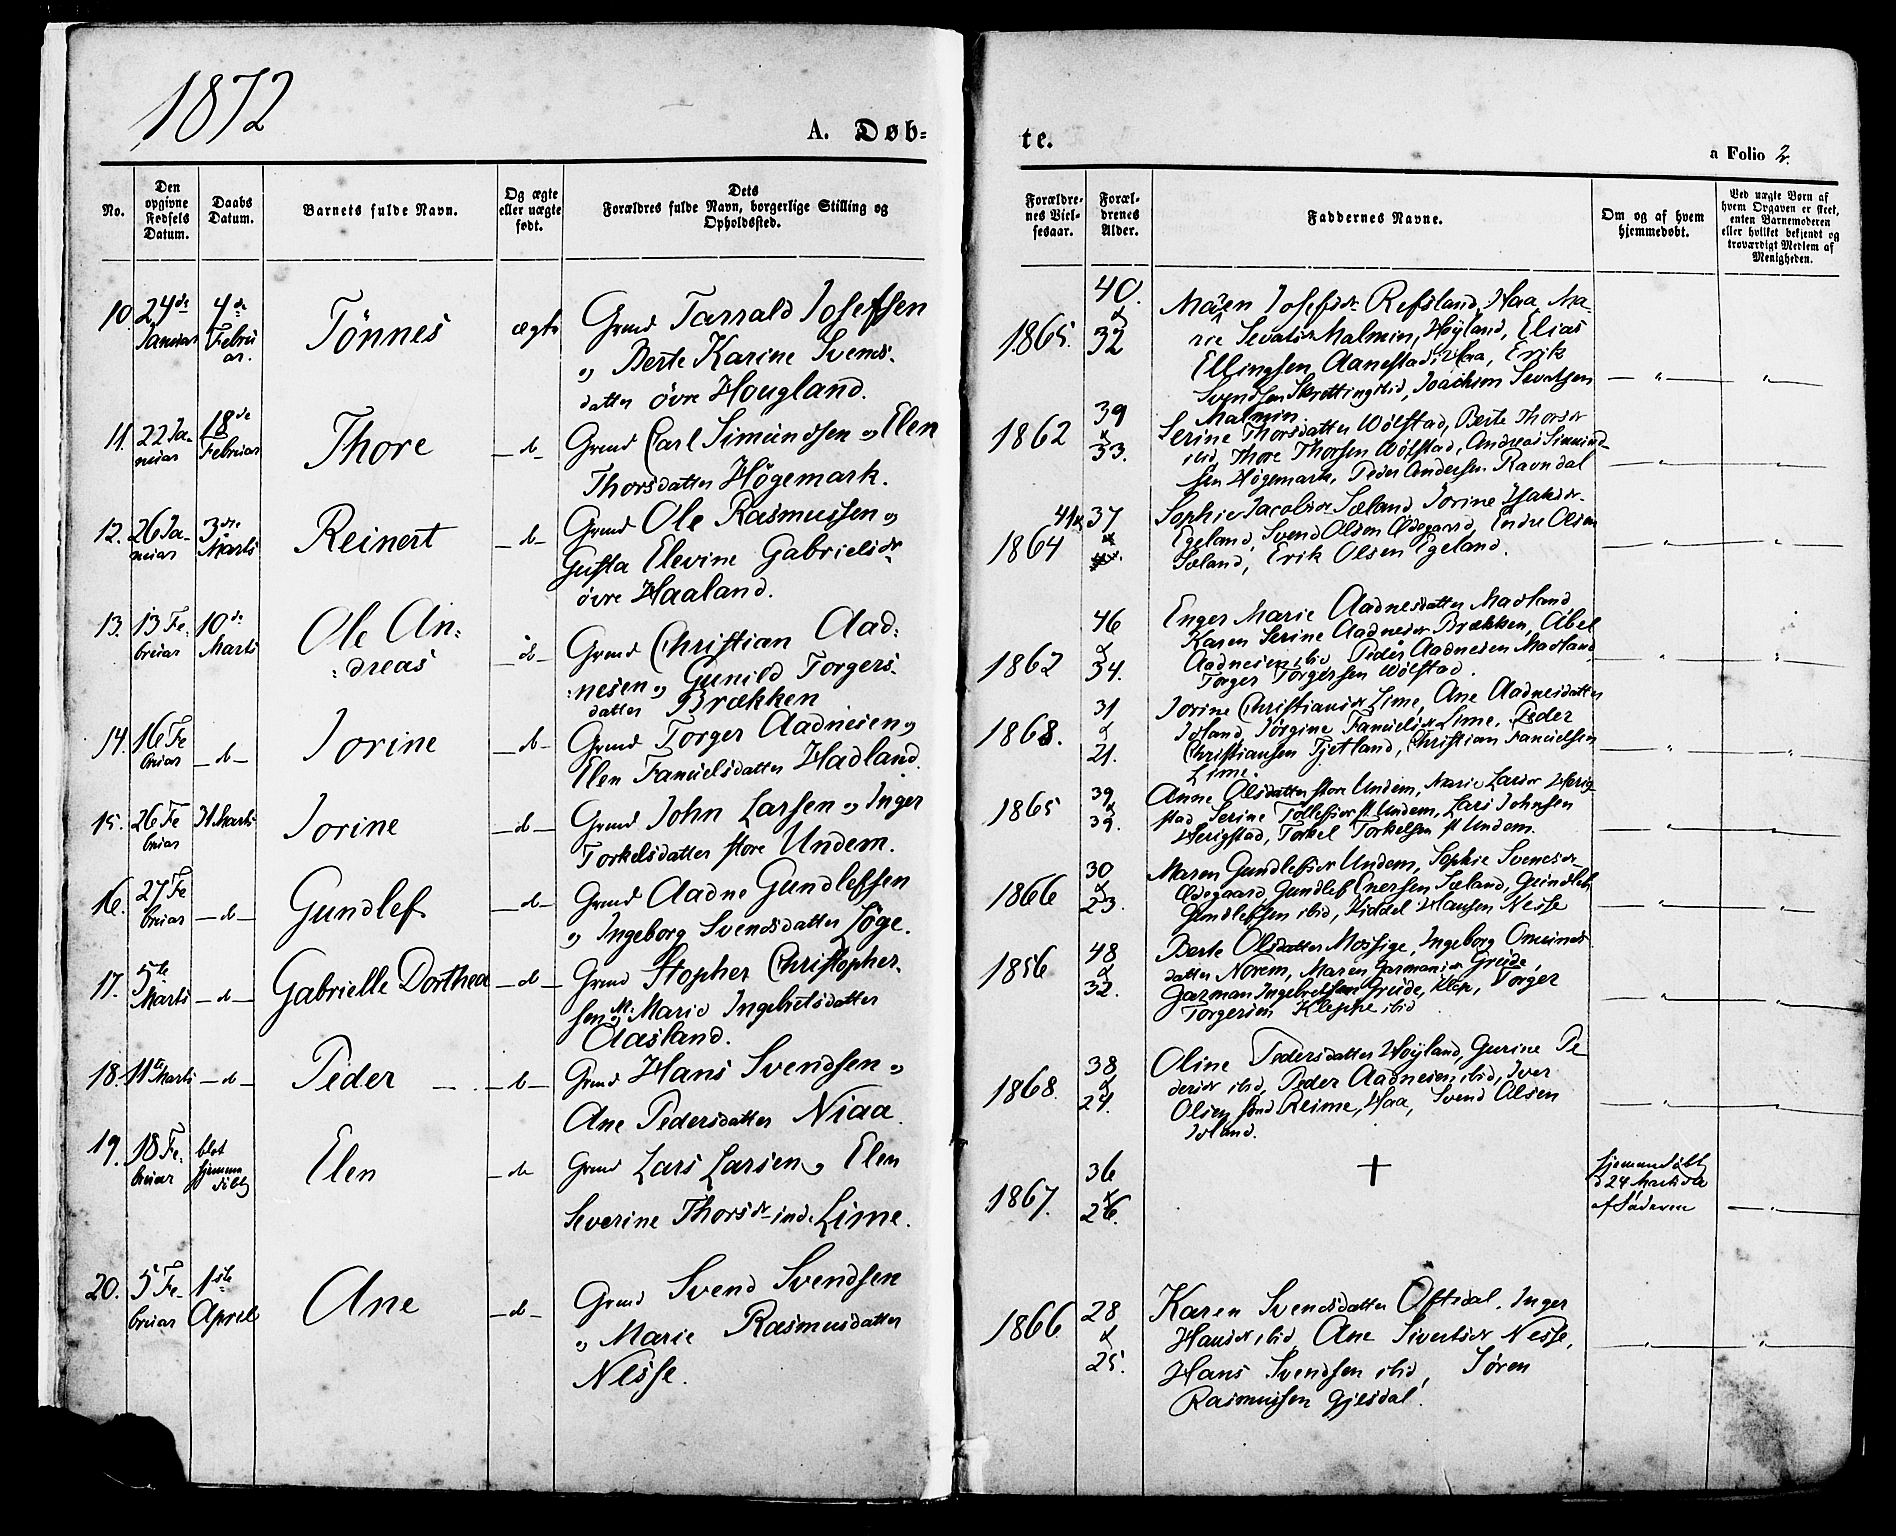 1872
A. Døb=
te.
a Folio 2.
No.
Den opgivne Fødsels Datum.
Daabs Datum.
Barnets fulde Navn.
Og ægte eller uægte født.
Dets Forældres fulde Navn, borgerlige Stilling og Opholdssted.
Forældrenes Vielsesaar.
Forældrenes Alder.
Faddernes Navne.
Om og af hvem hjemmedøbt.
Ved uægte Børn af hvem Opgaven er skeet, enten Barnemoderen eller hvilket bekjendt og troværdigt Medlem af Menigheden.
10 24de Januar 4de Februar. Tönnes ægte Grmd Tarrald Josefsen
" Berte Karine Svends-
datter övre Hougland.
1865. 40. & 32
Maren Josefsdr Refsland, Haa, Ma-
rie Sevatsdr Malmin, Høyland, Elias
Ellingsen Aanestad, Haa, Erik
Svendsen Skrettingibid, Joachim Sevatsen
Malmin.
11. 22 Januar 18de Februar Thore -d- Grmd Carl Simundsen " Elen
Thorsdatter Högemark.
1862 39 & 33.
Serine Thorsdatter Wølstad, Berte Thorsdr
ibid, Thore Thorsen Wølstad, Andreas Simund-
sen Høgemark, Peder Andersen Ravndal
12. 26 Januar 3die Marts Reinert -d- Grmd Ole Rasmussen "
Gusta Elevine Gabrielsdr
övre Haaland.
1864 41 & 37
Sophie Jacobsdr Sæland, Jorine Isaksdr
Egeland, Svend Olsen Ødegaard, Endre Olsen
Sæland, Erik Olsen Egeland.
13. 13 Februar 10de Marts Ole An=
=dreas -d- Grmd Christian Aad=
=nesen " Gunild Torgers-
datter Brækken
1862 46 & 34.
Enger Marie Aadnesdatter Madland
Karen Serine Aadnesdr Brækken, Abel
Aadnesen ibid, Peder Aadnesen Madland
Torger Torgersen Wølstad.
14. 16 Februar -d- Jorine -d- Grmd Torger Aadnesen "
Elen Fanuelsdatter Hadland.
1868. 31 & 21.
Jorine Christiansdr Lime, Ane Aadnesdatter
Island, Jørgine Fanuelsdr Lime, Peder
Christiansen Tjetland, Christian Fanuelsen
Lime.
15. 26 Februar 31 Marts Jorine -d- Grmd John Larsen " Inger
Torkelsdatter store Undem.
1865 39 & 39.
Anne Olsdatter store Undem, Marie Larsdr Herig-
stad, Serine Tollefsdr st. Undem, Lars Johnsen
Herigstad, Torkel Torkelsen st Undem.
16. 27 Februar -d- Gundlef -d- Grmd Aadne Gundlefsen
" Ingeborg Svendsdatter Söge.
1866 30 & 23.
Maren Gundlefsdr Undem, Sophie Svendsdr
Ødegaard, Gundlef Enersen Sæland, Gundlef
Gundlefsen ibid, Kiddel Hansen Nesse
17. 5te Marts -d- Gabrielle Dorthea -d- Grmd Stopher Christopher-
sen " M: Marie Ingebretsdatter
Aasland.
1856 48 & 32.
Berte Olsdatter Mossige, Ingeborg Omunds
datter Norem, Maren Garmansdr Greide,
Garman Ingebretsen Greide, Klep, Torger
Torgersen Kleppe ibid
18. 11te Marts -d- Peder -d- Grmd Hans Svendsen "
Ane Pedersdatter Niaa.
1868. 38 & 24.
Oline Pedersdatter Høyland, Gurine Pe-
dersdr ibid, Peder Aadnesen, ibid, Iver
Olsen Reime, Haa, Svend Olsen
Island.
19. 18 Februar blot hjemmedöbt Elen -d- Grmd Lars Larsen " Elen
Severine Thorsdr indr Lime.
1867. 36 & 26.
+
hjemmedöbt
d 24 Marts
af Faderen
20. 5 Februar 1ste April Ane -d- Grmd Svend Svendsen
" Marie Rasmusdatter
Nesse.
1866 28 & 25.
Karen Svendsdatter Oftedal. Inger
Hansdr ibid Ane Sivertsdr Nesse,
Hans Svendsen ibid, Søren
Rasmussen Gjesdal.